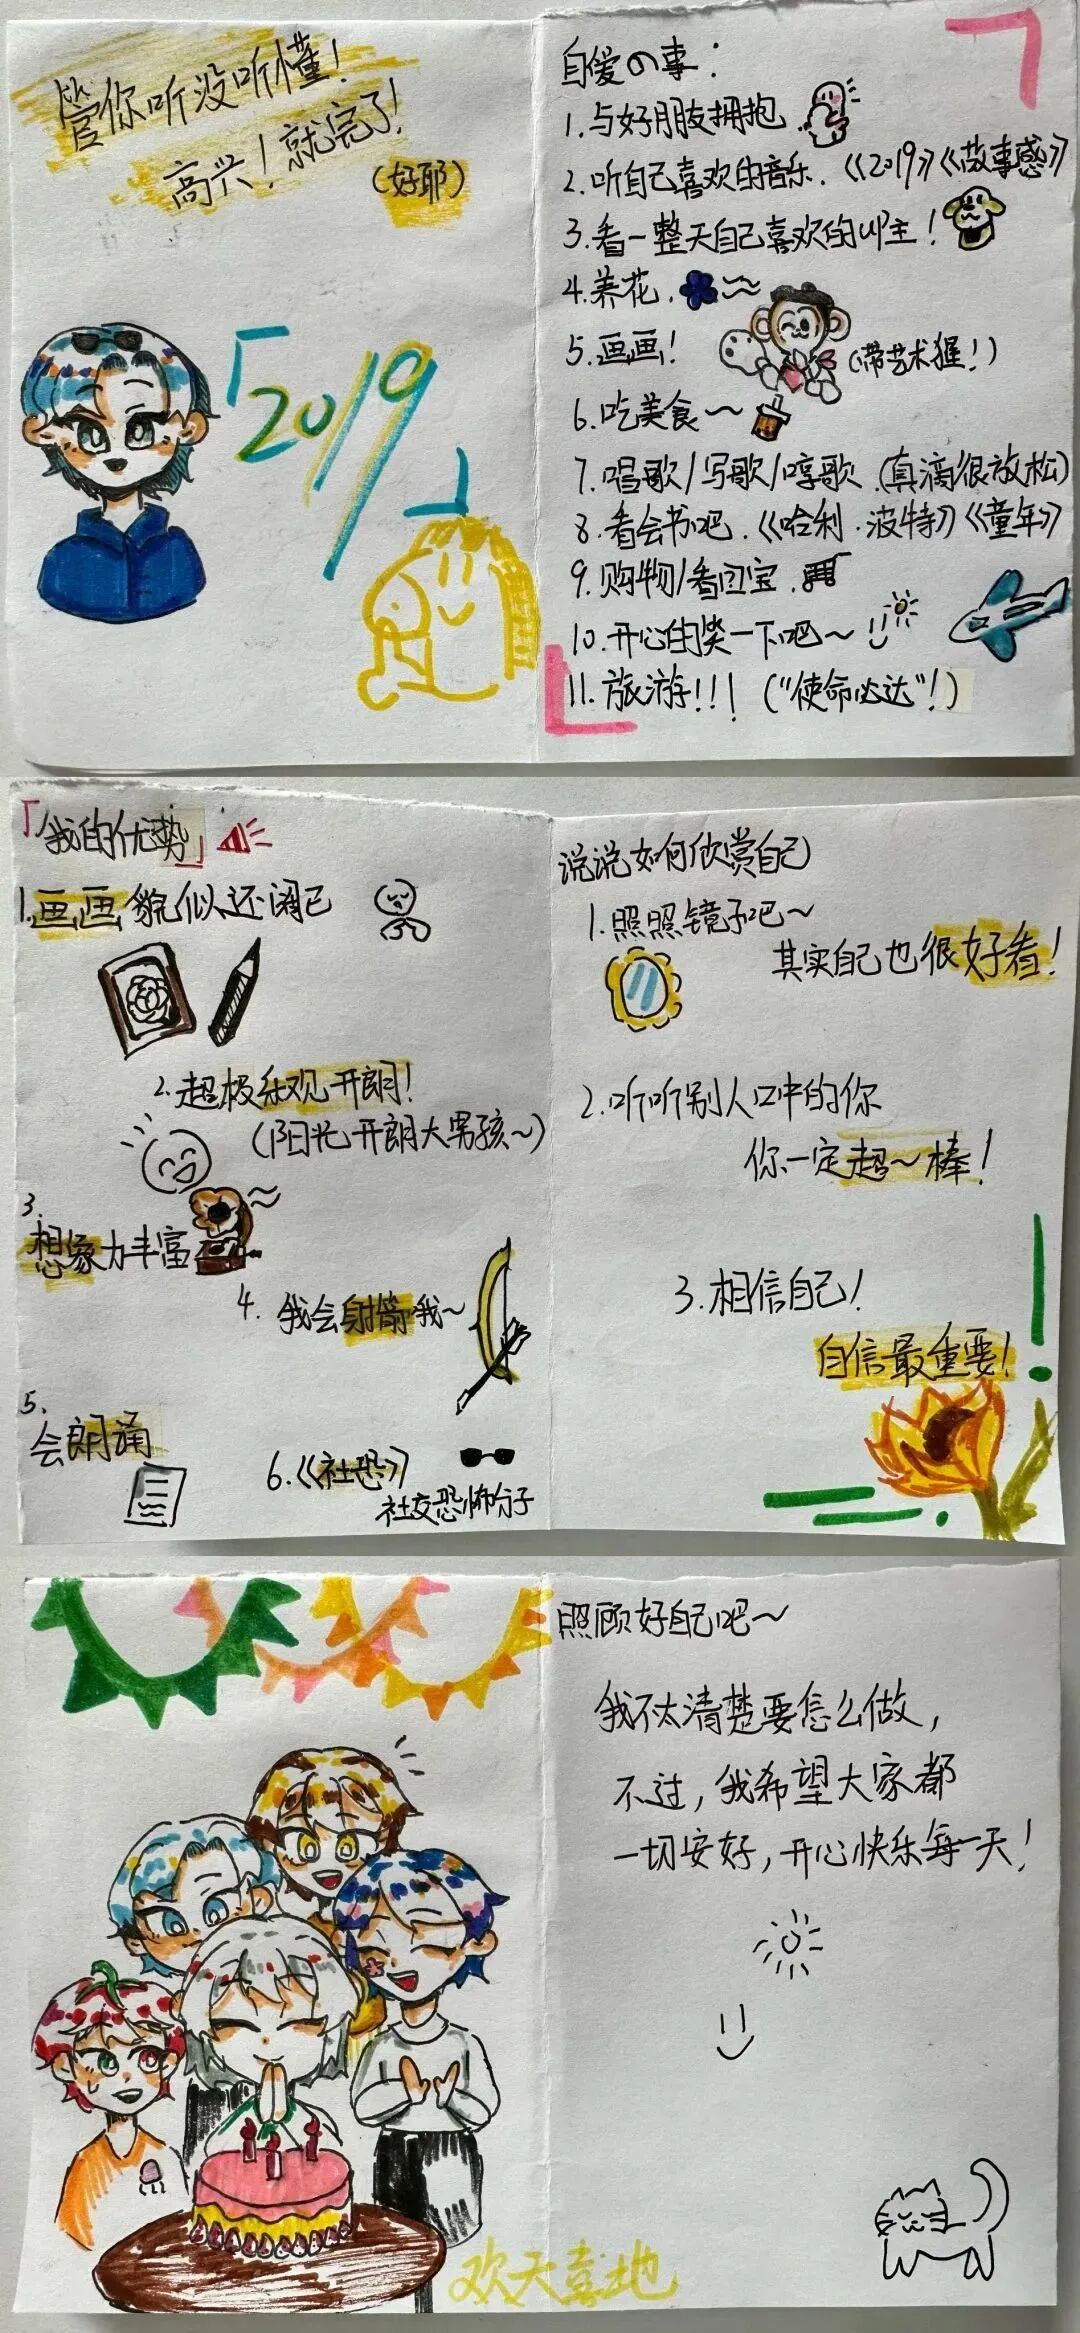 管你听没听懂！
高兴！就完了！
（好耶）
「2019」
自爱の事：
1.与好朋友拥抱.
2.听自己喜欢的音乐.《2019》《故事感》
3.看一整天自己喜欢的up主！
4.养花.
5.画画！
（带艺术猩！）
6.吃美食～
7.唱歌/写歌/哼歌.（真滴很放松）
8.看会书吧.《哈利·波特》《童年》
9.购物/看回宝.
10.开心的笑一下吧～
11.旅游！！！（"使命必达"！）
「我的优势」
1.画画貌似还阔已
2.超极乐观开朗！
（阳光开朗大男孩～）
3.
想象力丰富
4.我会射箭哦～
5、
会朗诵
6.《社恐》
社交恐怖分子
说说如何欣赏自己
1.照照镜子吧～
其实自己也很好看！
2.听听别人口中的你
你一定超～棒！
3.相信自己！
自信最重要！
欢天喜地
照顾好自己吧～
我不太清楚要怎么做，
不过，我希望大家都
一切安好，开心快乐每一天！